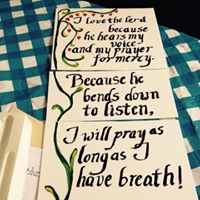 I love the lord
because
he hears my
voice
and my prayer
for mercy.
Because he
bends down
to listen,
I will pray as
long as I
have breath!